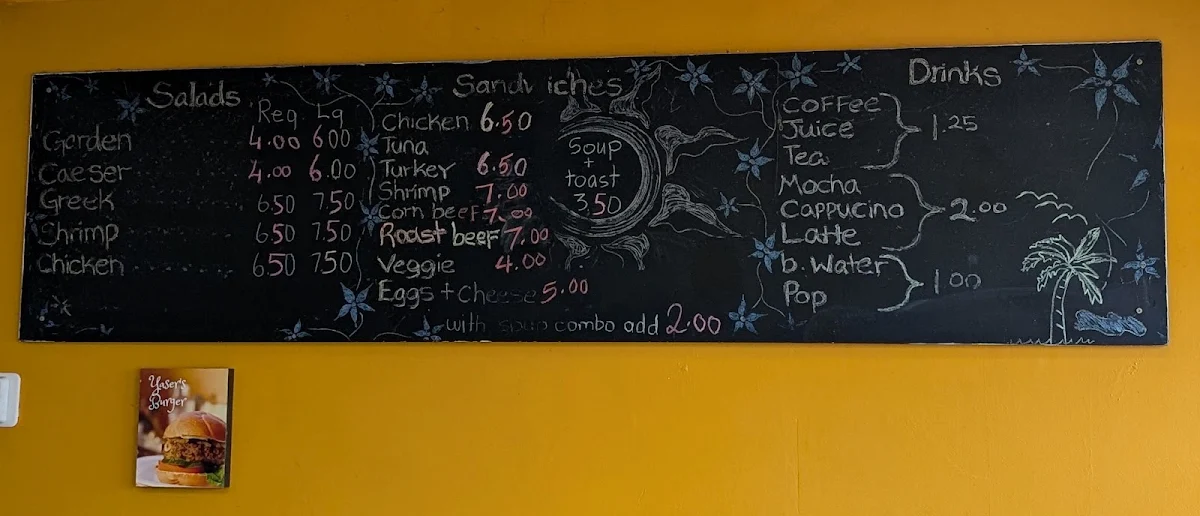 Salads
Reg Lg
Garden 4.00 6.00
Caeser 4.00 6.00
Greek 6.50 7.50
Shrimp 6.50 7.50
Chicken 6.50 7.50
Sandwiches
Chicken 6.50
Tuna
Turkey 6.50
Shrimp 7.00
Corn beef 7.00
Roast beef 7.00
Veggie 4.00
Eggs + Cheese 5.00
with soup combo add 2.00
Soup
+
toast
3.50
Drinks
Coffee
Juice 1.25
Tea
Mocha
Cappucino 2.00
Latte
b. Water
Pop 1.00
Yaser's
Burger